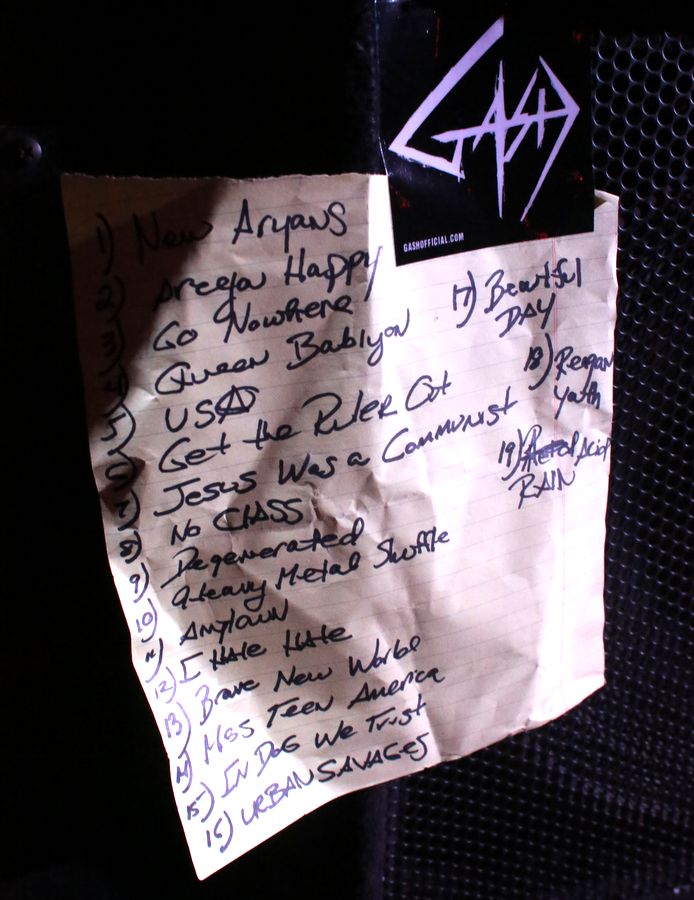 GASH
GASHOFFICIAL.COM
1) New Aryans
2) Areeja Happy
3) Go Nowhere
4) Queen Bablyon
5) USA
6) Get the Ruler Out
7) Jesus Was a Communist
8) No CLASS
9) Degenerated
10) Heavy Metal Shuffle
11) Anytown
12) I Hate Hate
13) Brave New World
14) Miss Teen America
15) IN DOG We Trust
16) URBAN SAVAGES
17) Beautiful
DAY
18) Reagan
Youth
19) Acid
RAIN